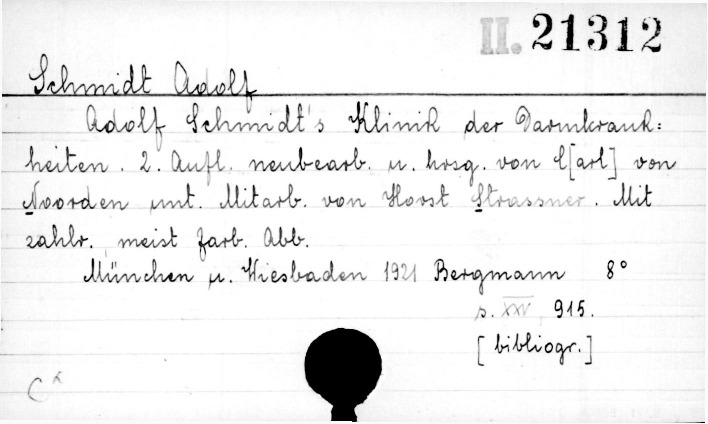 II. 21312
Schmidt Adolf
Adolf Schmidt's Klinik der Darmkrank=
heiten. 2. Aufl. neubearb. u. hrsg. von C[arl] von
Noorden unt. Mitarb. von Horst Strassner. Mit
zahlr., meist farb. Abb.
München u. Wiesbaden 1921 Bergmann 8°
s. XXV, 915.
[bibliogr.]